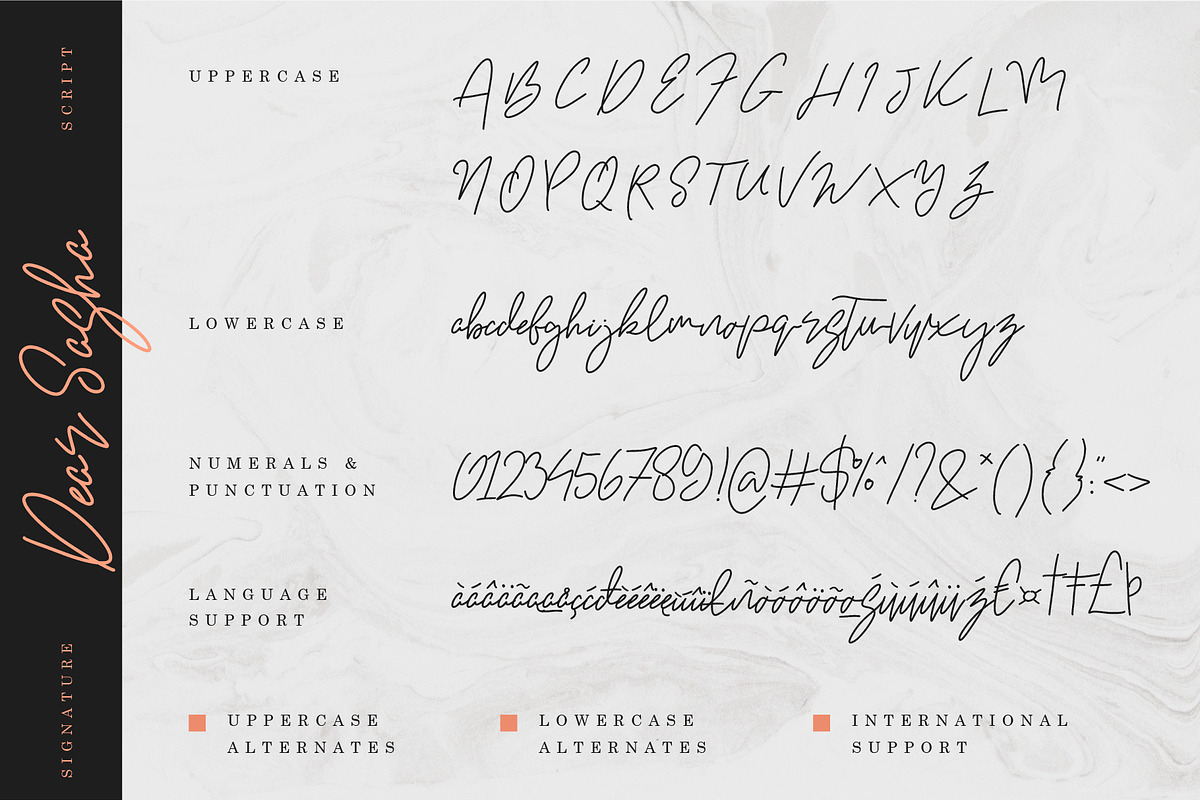 SCRIPT
Dear Sasha
SIGNATURE
UPPERCASE
ABCDEFGHIJKLM
NOPQRSTUVWXYZ
LOWERCASE
abcdefghijklmnopqrstuvwxyz
NUMERALS &
PUNCTUATION
0123456789!@#$%^/?&*(){}:"<>
LANGUAGE
SUPPORT
UPPERCASE
ALTERNATES
LOWERCASE
ALTERNATES
INTERNATIONAL
SUPPORT